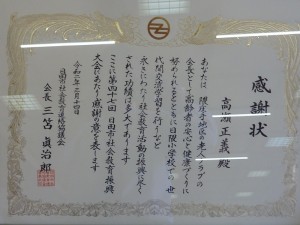 感謝状
高瀬正義殿
あなたは 隈庄手地区の老人クラブの
会長として高齢者の安心と健康づくりに
努められるとともに日隈小学校での世
代間交流学習を行うなど
永きにわたり社会教育活動の振興に尽く
された功績は多大であります
ここに第四十七回日田市社会教育振興
大会にあたり感謝の意を表します
令和二年二月十四日
日田市社会教育連絡協議会
会長 三笘貞治郎